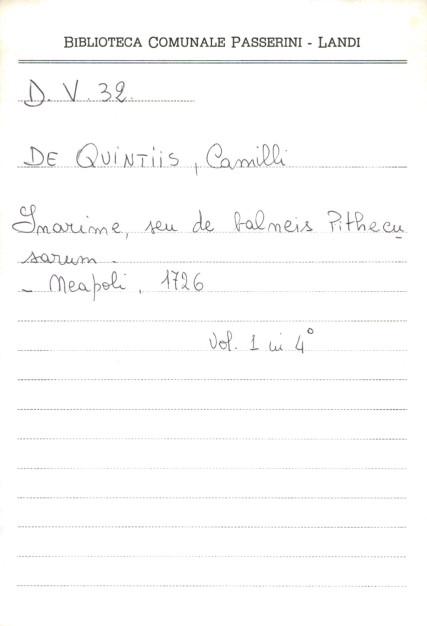 BIBLIOTECA COMUNALE PASSERINI - LANDI
D. V. 32.
DE QUINTIIS, Camilli
Inarime, seu de balneis Pithecu
sarum.
- Neapoli, 1726
Vol. 1 in 4°